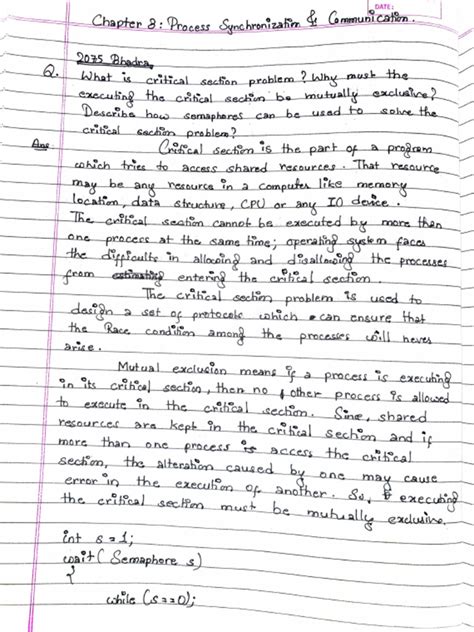 DATE:
Chapter 3: Process Synchronization & Communication.
2075 Bhadra
Q. What is critical section problem? Why must the
executing the critical section be mutually exclusive?
Describe how semaphores can be used to solve the
critical section problem?
Ans Critical section is the part of a program
which tries to access shared resources. That resource
may be any resource in a computer like memory
location, data structure, CPU or any IO device.
The critical section cannot be executed by more than
one process at the same time; operating system faces
the difficulties in allowing and disallowing the processes
from entering the critical section.
The critical section problem is used to
design a set of protocols which can ensure that
the Race condition among the processes will never
arise.
Mutual exclusion means if a process is executing
in its critical section, then no other process is allowed
to execute in the critical section. Sine, shared
resources are kept in the critical section and if
more than one process access the critical
section, the alteration caused by one may cause
error in the execution of another. So, executing
the critical section must be mutually exclusive.
int s = 1;
wait( Semaphore s)
{
while (s==0);